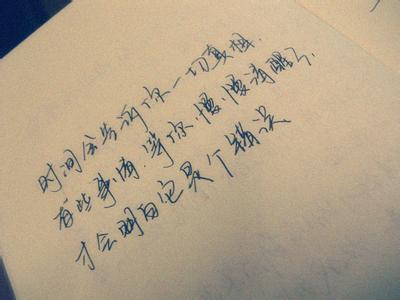 时间会告诉你一切真相.
有些事情,等你,慢,慢清醒了.
才会明白它是个错误